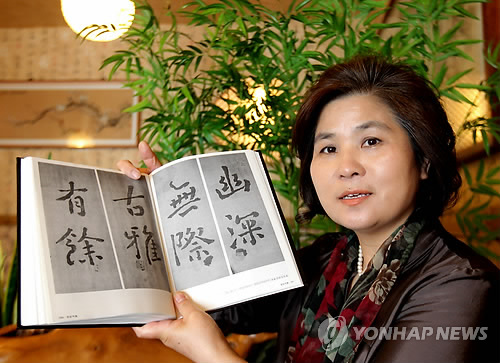 幽深
無際
古雅
有餘
YONHAP NEWS